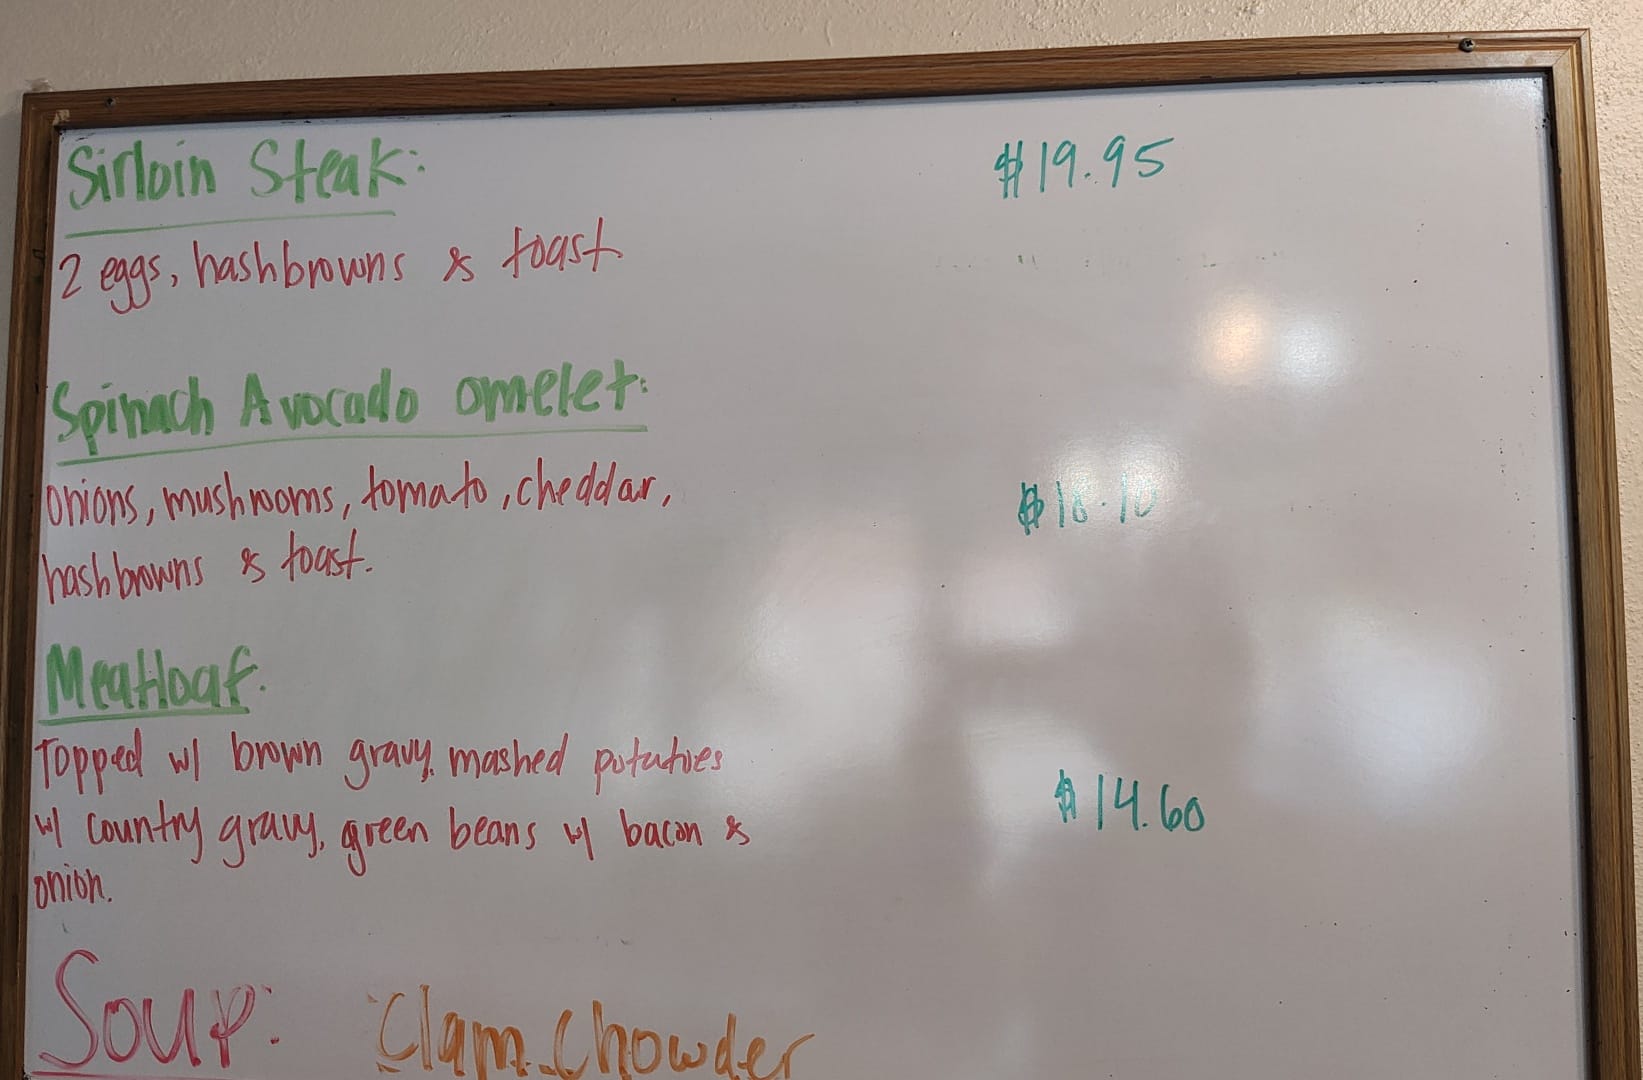 Sirloin Steak:
$19.95
2 eggs, hashbrowns & toast
Spinach Avocado omelet:
onions, mushrooms, tomato, cheddar,
hashbrowns & toast.
Meatloaf.
Topped w/ brown gravy, mashed potatoes
w/ country gravy, green beans w/ bacon &
$14.60
onion.
Soup: Clam Chowder